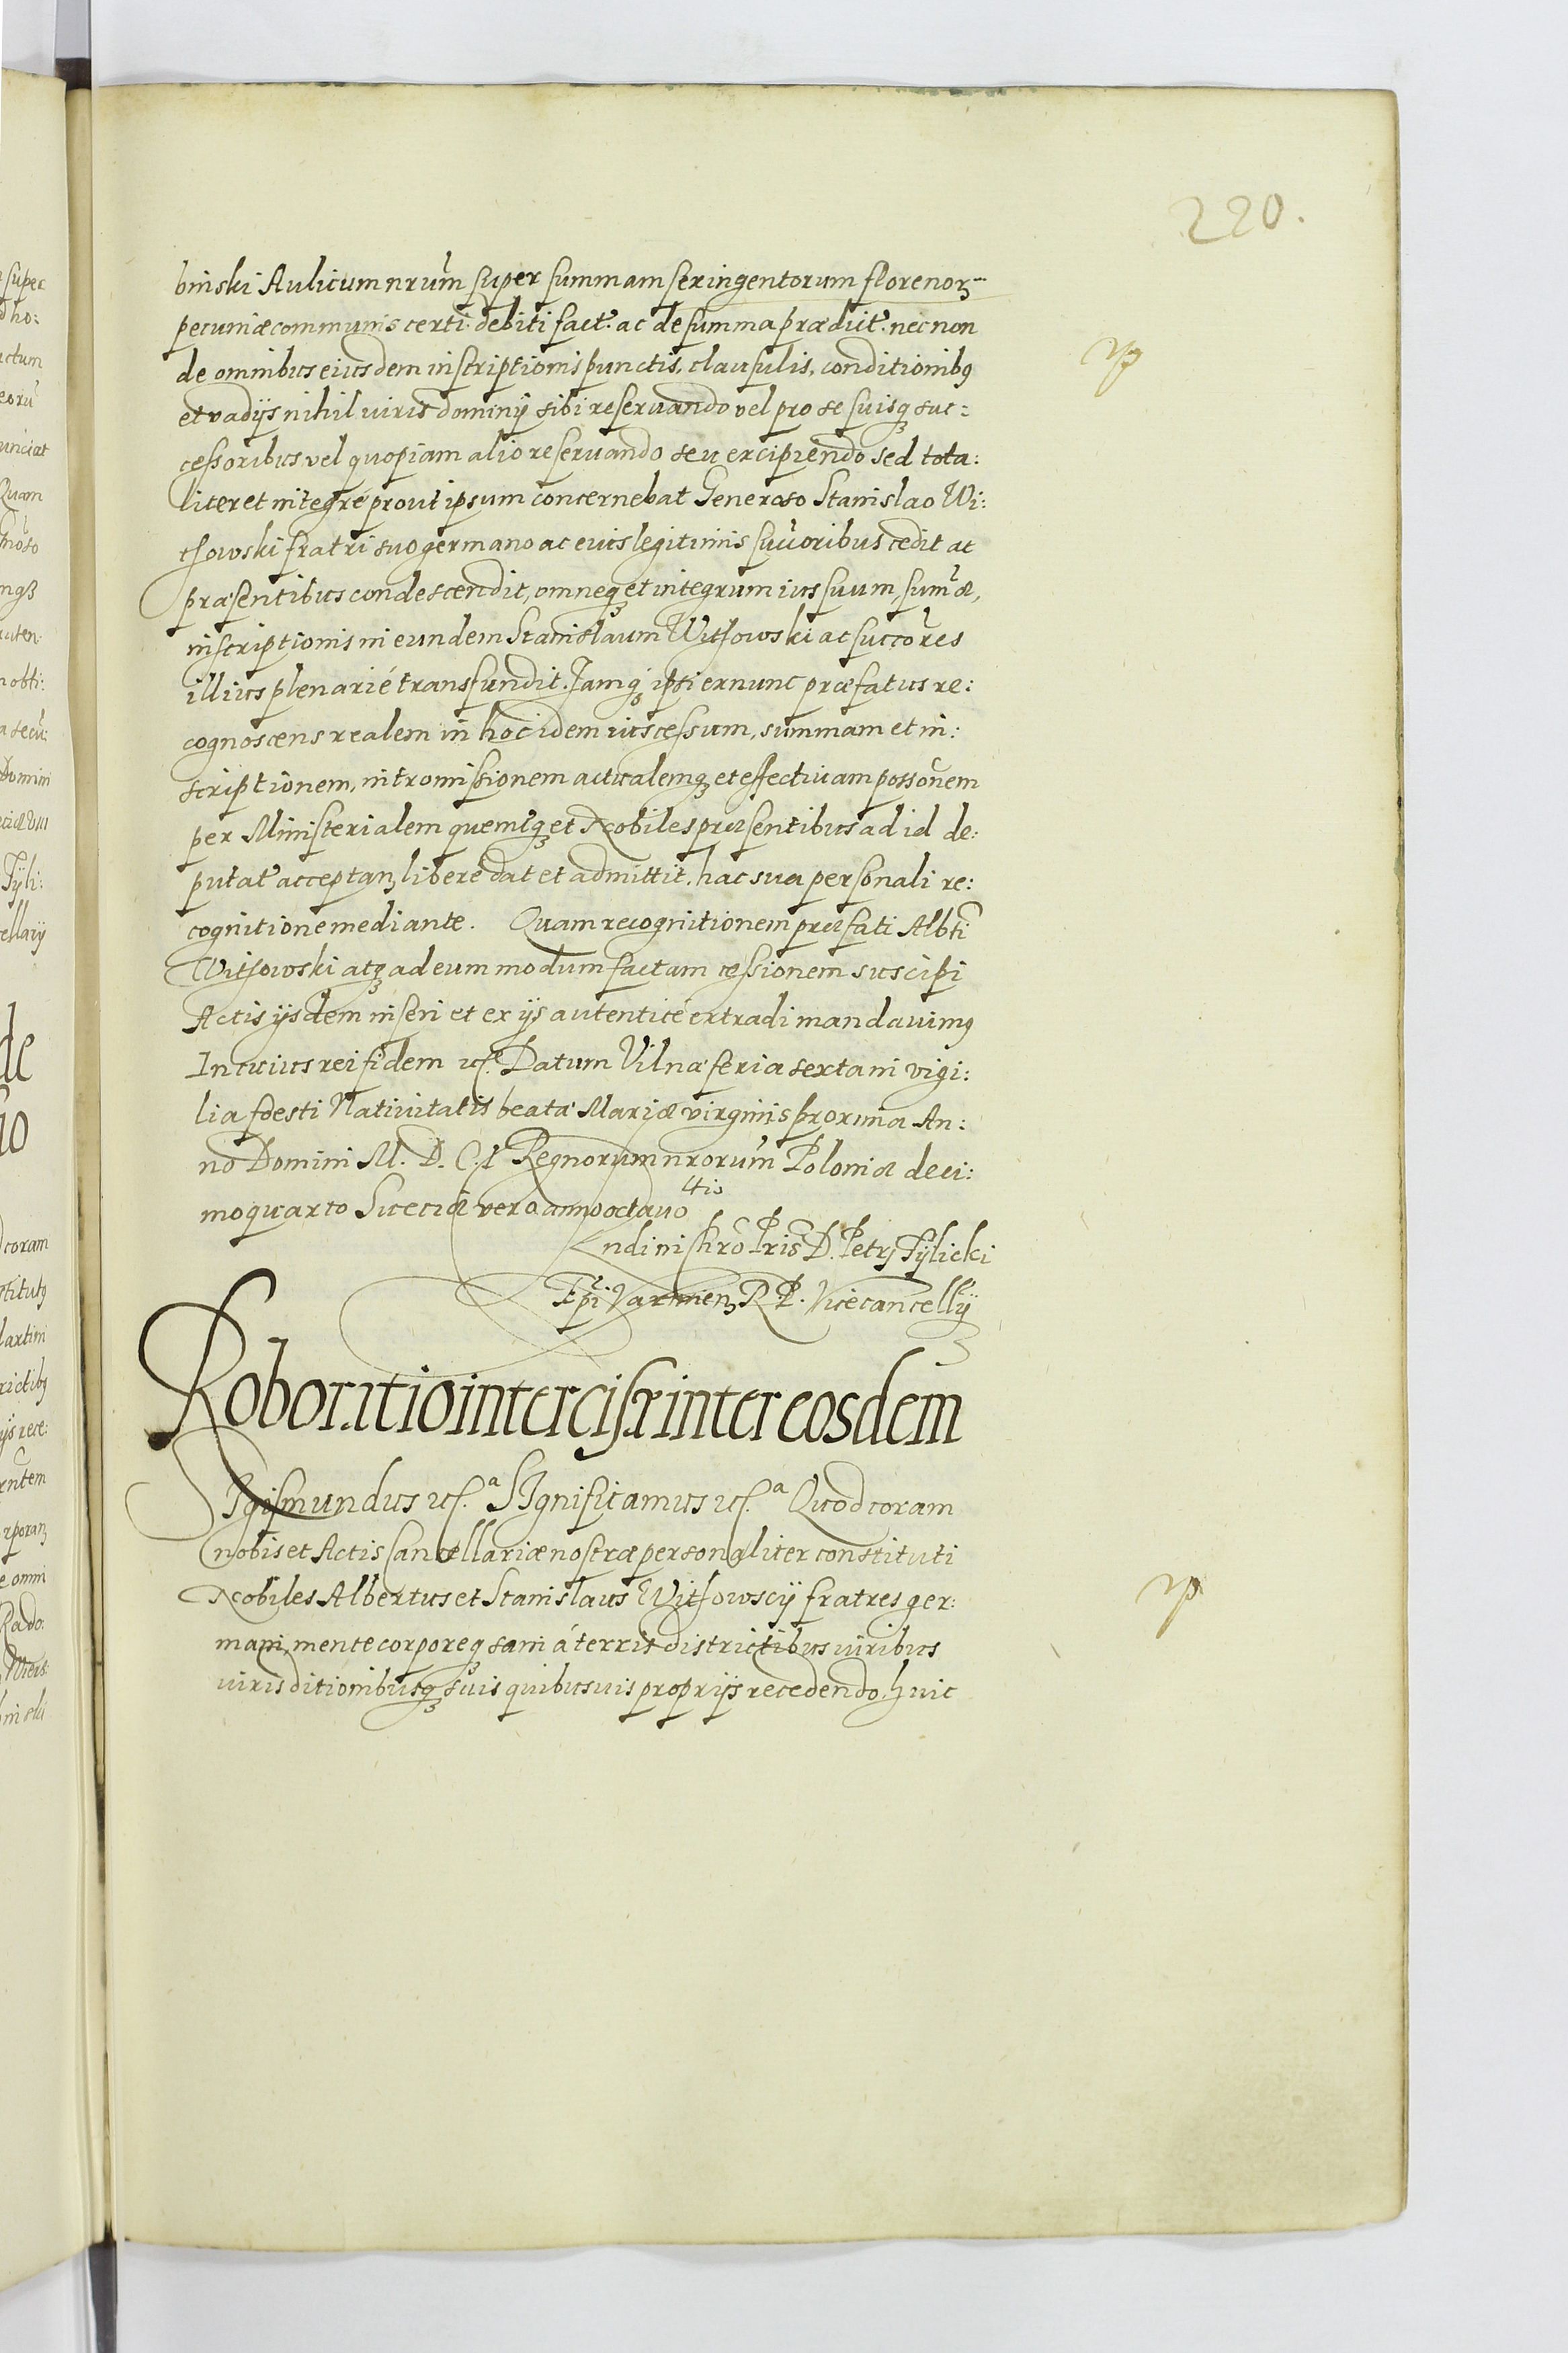 220.
binski Aulicum nrum super summam sexingentorum florenorꝫ
pecuniæ communis certi debiti fact. ac de summa prædict. nec non
de omnibus eiusdem inscriptionis punctis, clausulis, conditionibꝰ
et vadijs nihil iuris dominij sibi reseruando vel pro se suisqꝫ suc:
cessoribus vel quopiam alio reseruando seu excipiendo sed tota:
liter et integre prout ipsum concernebat Generoso Stanislao Wi:
tſowski fratri suo germano ac eius legitimis succoribus cedit at
præsentibus condescendit, omneqꝫ et integrum ius suum, sumæ,
inscriptionis in eundem Stanislaum Witſowski ac succores
illius plenarié transfundit. Jamqꝫ ipsi exnunc præfatus re:
cognoscens realem in hoc idem ius cessum, summam et in:
scriptionem, intromissionem actualemqꝫ et effectiuam possonem
per Ministerialem quemcqꝫ et Nobiles præsentibus ad id de:
putat acceptanꝫ libere dat et admittit. hac sua personali re:
cognitione mediante. Quam recognitionem præfati Albti
Witſowski atqꝫ ad eum modum factam cessionem suscipi
Actis ijsdem inseri et ex ijs autenticé extradi mandauimꝰ
In cuius rei fidem etc. Datum Vilnæ feria sexta in vigi:
lia foesti Natiuitatis beatæ Mariæ virginis proxima An:
no Domini M. D. C. I Regnorum nrorum Poloniæ deci:
moquarto Sueciæ vero anno octauo
Rndi in Chro Pris D. Petrj Tylicki
Epi Varmienꝫ R P. Vicecancellij
Roboratio intercisæ inter eosdem
SIgismundus etc.ª SIgnificamus etc.ª Quod coram
nobis et Actis Cancellariæ nostræ personaliter constituti
Nobiles Albertus et Stanislaus Witſowscij fratres ger:
mani, mente corporeqꝫ sani á terris districtibus iuribus
iurisditionibusqꝫ suis quibusuis proprijs recedendo, huic